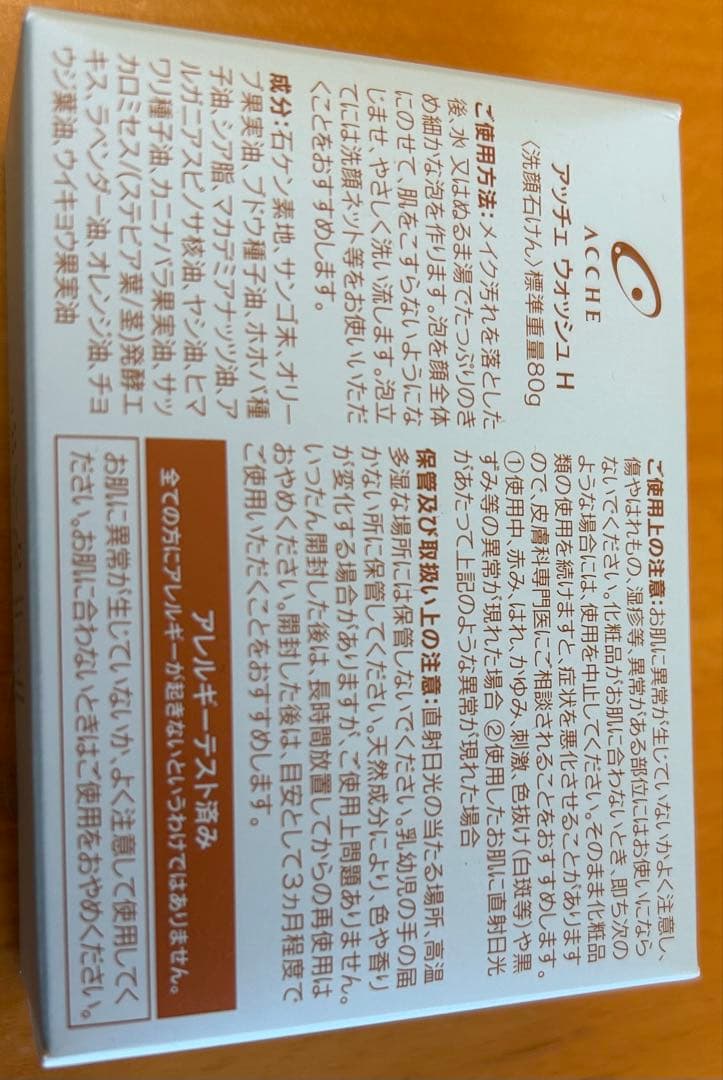 ACCHE
アッチェ ウォッシュ H
〈洗顔石けん〉標準重量80g
ご使用方法:メイク汚れを落とした
後、水 又はぬるま湯でたっぷりのき
め細かな泡を作ります。泡を顔全体
にのせて、肌をこすらないようにな
じませ、やさしく洗い流します。泡立
てには洗顔ネット等をお使いいただ
くことをおすすめします。
成分:石ケン素地、サンゴ末、オリー
ブ果実油、ブドウ種子油、ホホバ種
子油、シア脂、マカデミアナッツ油、ア
ルガニアスピノサ核油、ヤシ油、ヒマ
ワリ種子油、カニナバラ果実油、サッ
カロミセス/(ステビア葉/茎)発酵エ
キス、ラベンダー油、オレンジ油、チョ
ウジ葉油、ウイキョウ果実油
ご使用上の注意:お肌に異常が生じていないかよく注意し、
傷やはれもの、湿疹等、異常がある部位にはお使いになら
ないでください。化粧品がお肌に合わないとき、即ち次の
ような場合には、使用を中止してください。そのまま化粧品
類の使用を続けますと、症状を悪化させることがあります
ので、皮膚科専門医にご相談されることをおすすめします。
①使用中、赤み、はれ、かゆみ、刺激、色抜け(白斑等)や黒
ずみ等の異常が現れた場合 ②使用したお肌に直射日光
があたって上記のような異常が現れた場合
保管及び取扱い上の注意:直射日光の当たる場所、高温
多湿な場所には保管しないでください。乳幼児の手の届
かない所に保管してください。天然成分により、色や香り
が変化する場合がありますが、ご使用上問題ありません。
いったん開封した後は、長時間放置してからの再使用は
おやめください。開封した後は、目安として3カ月程度で
ご使用いただくことをおすすめします。
アレルギーテスト済み
全ての方にアレルギーが起きないというわけではありません。
お肌に異常が生じていないか、よく注意して使用してく
ださい。お肌に合わないときはご使用をおやめください。